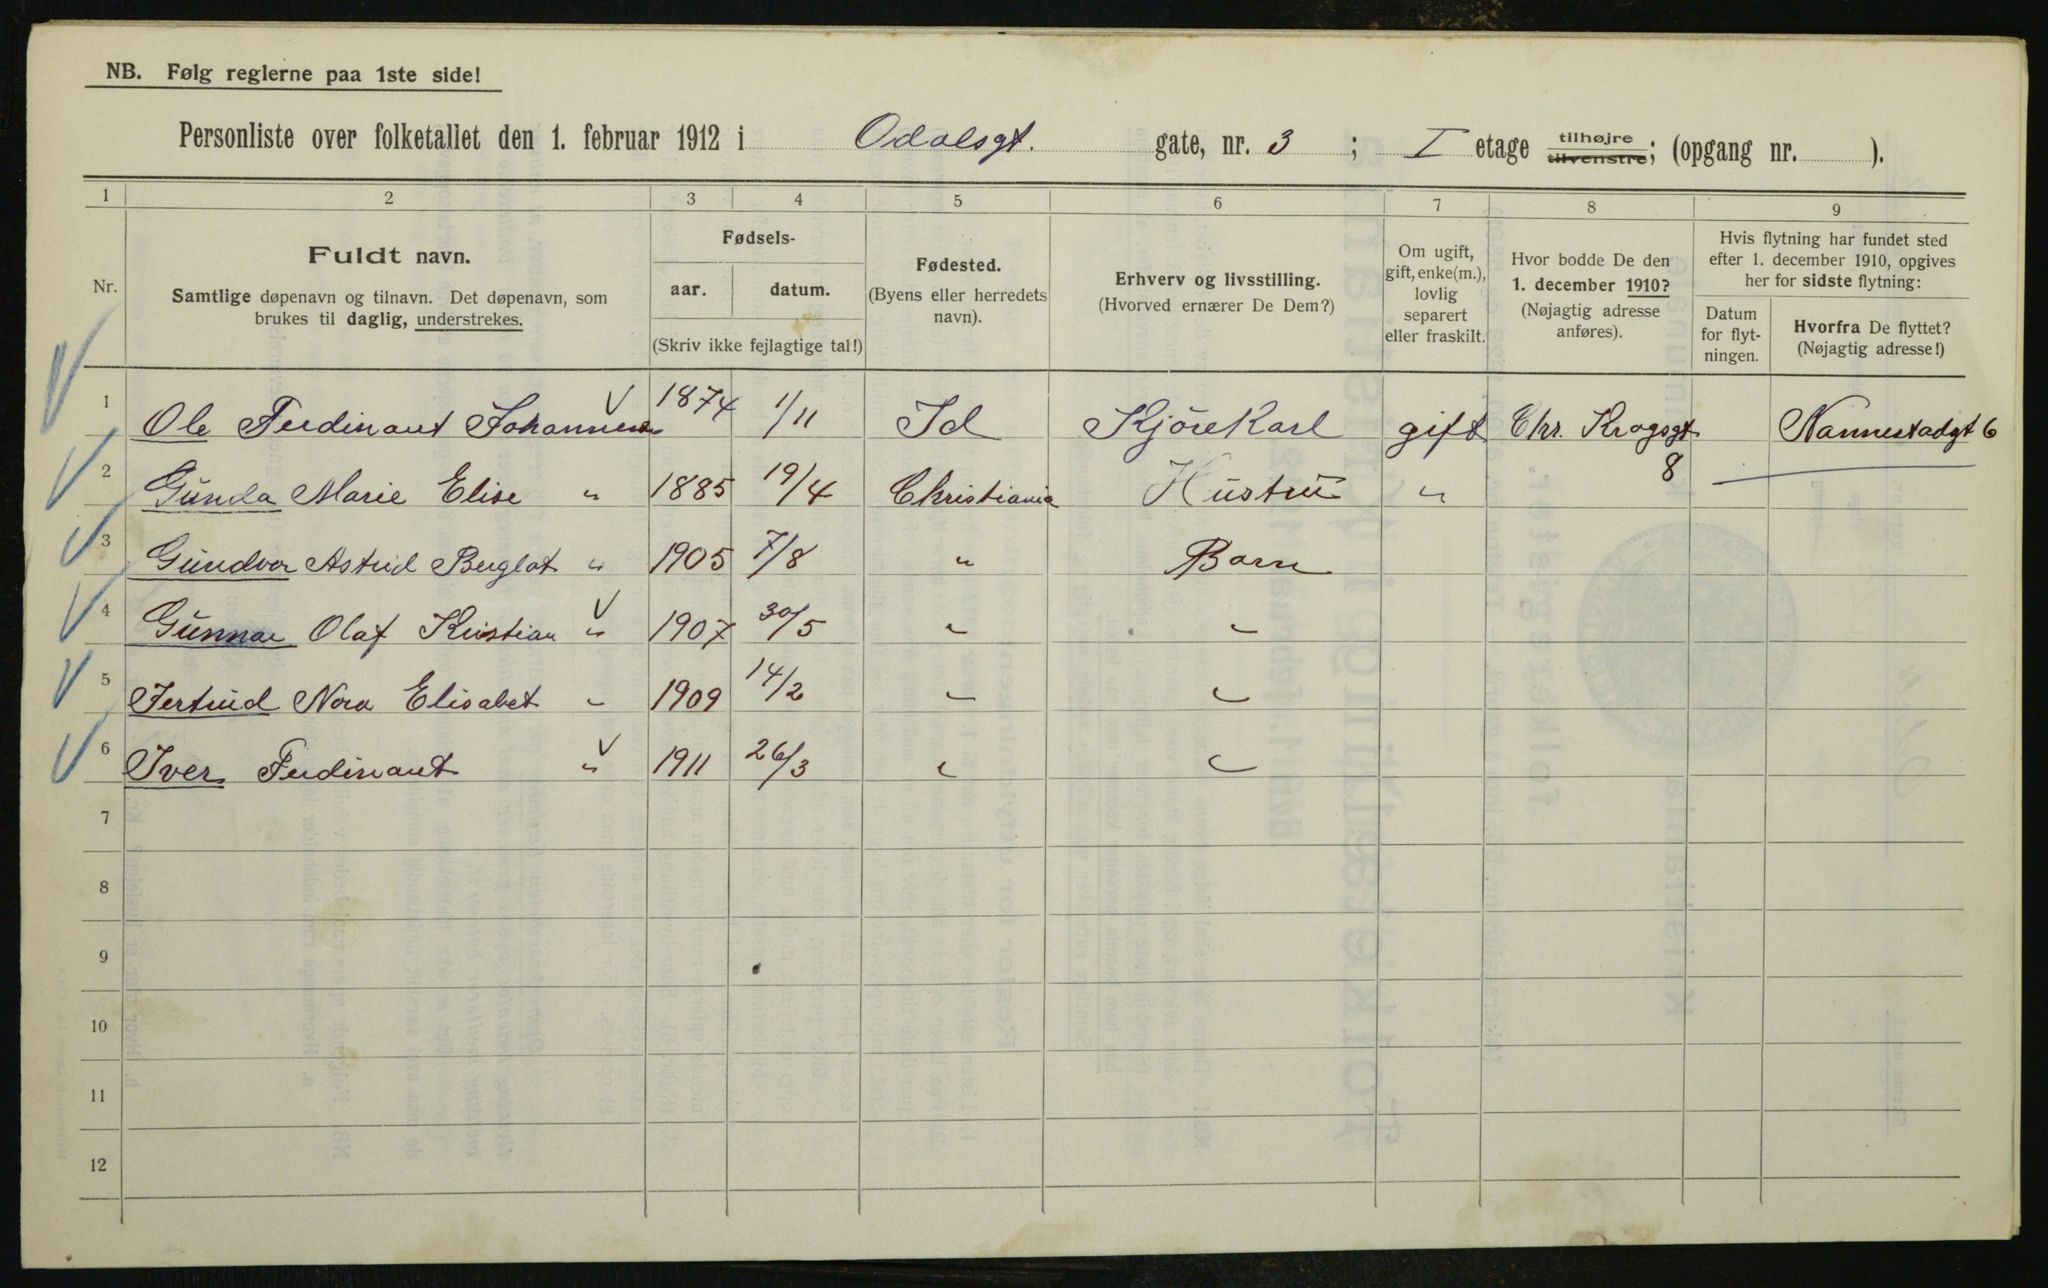 NB. Følg reglerne paa 1ste side!
Personliste over folketallet den 1. februar 1912 i Odalsgt. gate, nr. 3 ; I etage tilhøjre tilvenstre; (opgang nr. ).
1 2 3 4 5 6 7 8 9
Nr.
Fuldt navn.
Samtlige døpenavn og tilnavn. Det døpenavn, som
brukes til daglig, understrekes.
Fødsels-
aar. datum.
(Skriv ikke fejlagtige tal!)
Fødested.
(Byens eller herredets
navn).
Erhverv og livsstilling.
(Hvorved ernærer De Dem?)
Om ugift,
gift, enke(m.),
lovlig
separert
eller fraskilt.
Hvor bodde De den
1. december 1910?
(Nøjagtig adresse
anføres).
Hvis flytning har fundet sted
efter 1. december 1910, opgives
her for sidste flytning:
Datum
for flyt-
ningen.
Hvorfra De flyttet?
(Nøjagtig adresse!)
1 Ole Ferdinant Johannesen 1874 1/11 Id Kjörekarl gift Chr. Krogsgt 8 Nannestadgt 6
2 Gunda Marie Elise " 1885 19/4 Christiania Hustru "
3 Gundvor Astrid Berglot " 1905 7/8 " Barn
4 Gunnar Olaf Kristian " 1907 30/5 " "
5 Jertrud Nora Elisabet " 1909 14/2 " "
6 Iver Ferdinant " 1911 26/3 " "
7
8
9
10
11
12